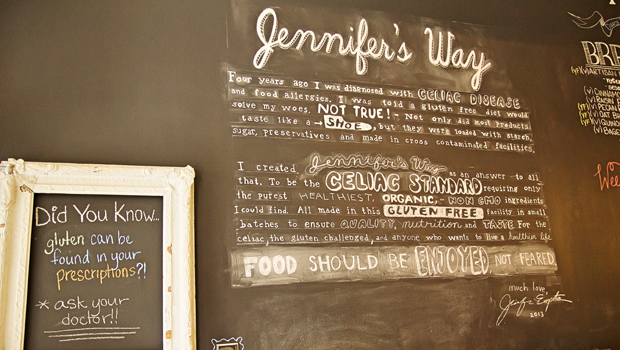 Jennifer's Way
Four years ago I was diagnosed with CELIAC DISEASE
and food allergies. I was told a gluten free diet would
solve my woes. NOT TRUE! - Not only did most products
taste like a → SHOE, but they were loaded with starch,
sugar, preservatives and made in cross contaminated facilities.
I created Jennifer's Way as an answer - to all
that. To be the CELIAC STANDARD requiring only
the purest HEALTHIEST, ORGANIC, - NON GMO ingredients
I could find. All made in this GLUTEN FREE facility in small
batches to ensure QUALITY, nutrition and TASTE For the
celiac, the gluten challenged, and anyone who wants to live a healthier life.
FOOD SHOULD BE ENJOYED NOT FEARED
much love,
2013
Did You Know...
gluten can be
found in your
prescriptions?!
* ask your
doctor!!
BRE
(v) ARTISAN
(v) CINNAM
(v) RAISIN
(v) PECAN
(v) OAT
(v) QUINO
(v) BAGE
Wee